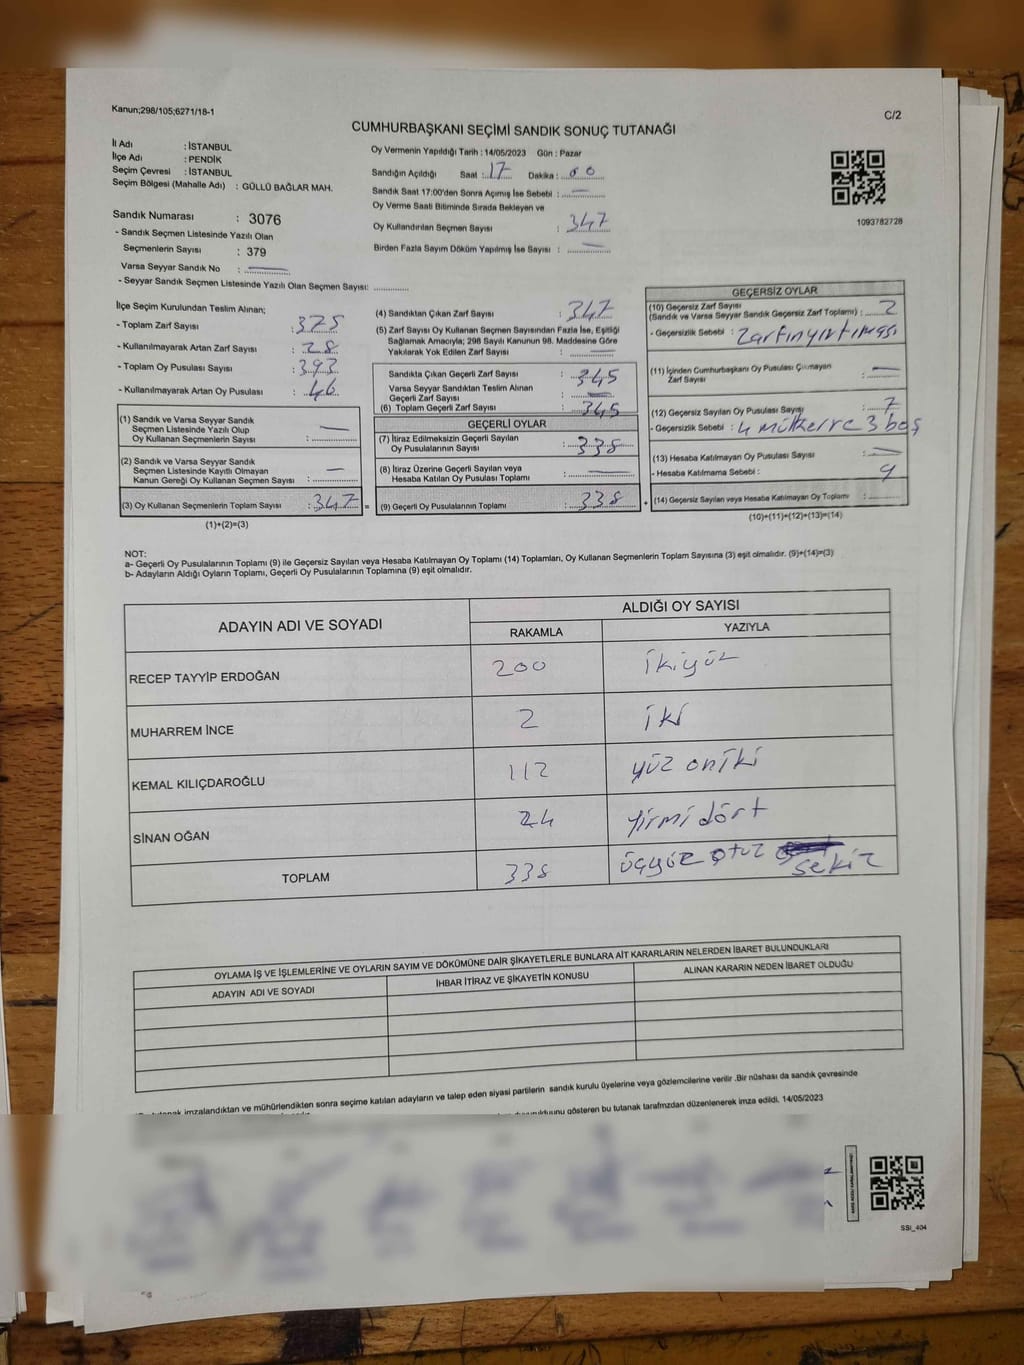 Kanun;298/105;6271/18-1
C/2
CUMHURBAŞKANI SEÇİMİ SANDIK SONUÇ TUTANAĞI
İl Adı : İSTANBUL
İlçe Adı : PENDİK
Seçim Çevresi : İSTANBUL
Seçim Bölgesi (Mahalle Adı) : GÜLLÜ BAĞLAR MAH.
Sandık Numarası : 3076
- Sandık Seçmen Listesinde Yazılı Olan
Seçmenlerin Sayısı : 379
Varsa Seyyar Sandık No :
- Seyyar Sandık Seçmen Listesinde Yazılı Olan Seçmen Sayısı:
Oy Vermenin Yapıldığı Tarih : 14/05/2023 Gün : Pazar
Sandığın Açıldığı Saat : 17 Dakika : 00
Sandık Saat 17:00'den Sonra Açımış İse Sebebi :
Oy Verme Saati Bitiminde Sırada Bekleyen ve
Oy Kullandırılan Seçmen Sayısı : 347
Birden Fazla Sayım Döküm Yapılmış İse Sayısı :
1093782728
İlçe Seçim Kurulundan Teslim Alınan;
- Toplam Zarf Sayısı : 375
- Kullanılmayarak Artan Zarf Sayısı : 28
- Toplam Oy Pusulası Sayısı : 393
- Kullanılmayarak Artan Oy Pusulası : 46
(1) Sandık ve Varsa Seyyar Sandık
Seçmen Listesinde Yazılı Olup
Oy Kullanan Seçmenlerin Sayısı :
(2) Sandık ve Varsa Seyyar Sandık
Seçmen Listesinde Kayıtlı Olmayan
Kanun Gereği Oy Kullanan Seçmen Sayısı :
(3) Oy Kullanan Seçmenlerin Toplam Sayısı : 347 =
(1)+(2)=(3)
(4) Sandıktan Çıkan Zarf Sayısı : 347
(5) Zarf Sayısı Oy Kullanan Seçmen Sayısından Fazla İse, Eşitliği
Sağlamak Amacıyla; 298 Sayılı Kanunun 98. Maddesine Göre
Yakılarak Yok Edilen Zarf Sayısı :
Sandıkta Çıkan Geçerli Zarf Sayısı : 345
Varsa Seyyar Sandıktan Teslim Alınan
Geçerli Zarf Sayısı :
(6) Toplam Geçerli Zarf Sayısı : 345
GEÇERLİ OYLAR
(7) İtiraz Edilmeksizin Geçerli Sayılan
Oy Pusulasının Sayısı : 338
(8) İtiraz Üzerine Geçerli Sayılan veya
Hesaba Katılan Oy Pusulası Toplamı :
(9) Geçerli Oy Pusulalarının Toplamı : 338 +
GEÇERSİZ OYLAR
(10) Geçersiz Zarf Sayısı
(Sandık ve Varsa Seyyar Sandık Geçersiz Zarf Toplamı) : 2
- Geçersizlik Sebebi : Zarfın yırtılması
(11) İçinden Cumhurbaşkanı Oy Pusulası Çıkmayan
Zarf Sayısı :
(12) Geçersiz Sayılan Oy Pusulası Sayısı : 7
- Geçersizlik Sebebi : 4 3 boş
(13) Hesaba Katılmayan Oy Pusulası Sayısı :
- Hesaba Katılmama Sebebi : 9
(14) Geçersiz Sayılan veya Hesaba Katılmayan Oy Toplamı :
(10)+(11)+(12)+(13)=(14)
NOT:
a- Geçerli Oy Pusulalarının Toplamı (9) ile Geçersiz Sayılan veya Hesaba Katılmayan Oy Toplamı (14) Toplamları, Oy Kullanan Seçmenlerin Toplam Sayısına (3) eşit olmalıdır. (9)+(14)=(3)
b- Adayların Aldığı Oyların Toplamı, Geçerli Oy Pusulalarının Toplamına (9) eşit olmalıdır.
ADAYIN ADI VE SOYADI
ALDIĞI OY SAYISI
RAKAMLA YAZIYLA
RECEP TAYYİP ERDOĞAN 200 ikiyüz
MUHARREM İNCE 2 iki
KEMAL KILIÇDAROĞLU 112 yüz oniki
SİNAN OĞAN 24 yirmi dört
TOPLAM 338 üçyüz otuz sekiz
OYLAMA İŞ VE İŞLEMLERİNE VE OYLARIN SAYIM VE DÖKÜMÜNE DAİR ŞİKAYETLERLE BUNLARA AİT KARARLARIN NELERDEN İBARET BULUNDUKLARI
ADAYIN ADI VE SOYADI İHBAR İTİRAZ VE ŞİKAYETİN KONUSU ALINAN KARARIN NEDEN İBARET OLDUĞU
tutanak imzalandıktan ve mühürlendikten sonra seçime katılan adayların ve talep eden siyasi partilerin sandık kurulu üyelerine veya gözlemcilerine verilir .Bir nüshası da sandık çevresinde
gösteren bu tutanak tarafımızdan düzenlenerek imza edildi. 14/05/2023
SSI_404